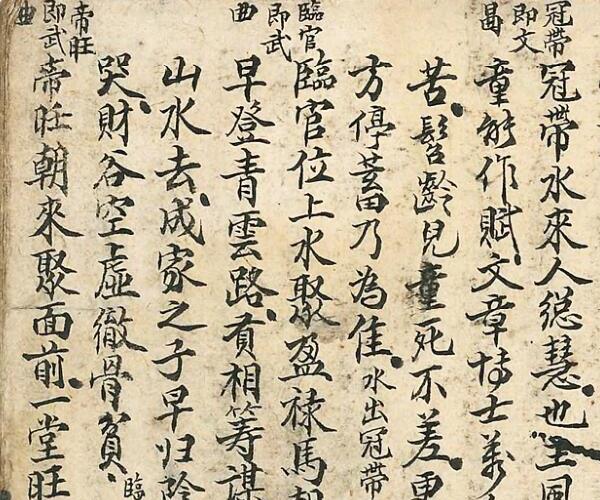 冠帶
即文
昌
冠帶水來人緫慧也主風
童能作賦文章博士萬
苦髫齡兒童死不差更
方停蓄乃為佳水出冠帶
臨官
即武
曲
臨官位上水聚盈祿馬
早登青雲路貧相籌謀
山水去成家之子早归陰
哭財谷空虛徹骨貧臨
帝旺
即武
曲
帝旺朝來聚面前一堂旺